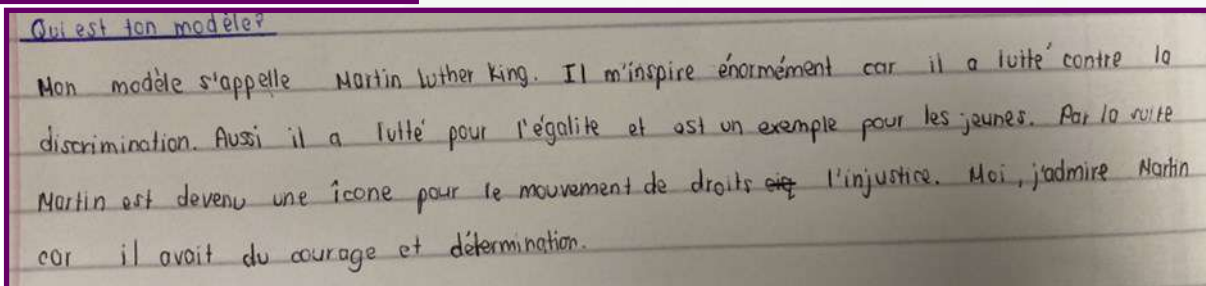 Qui est ton modèle?
Mon modèle s'appelle Martin Luther King. Il m'inspire énormément car il a lutté contre la
discrimination. Aussi il a lutté pour l'égalite et est un exemple pour les jeunes. Par la suite
Martin est devenu une îcone pour le mouvement de droits l'injustice. Moi, j'admire Martin
car il avait du courage et détermination.